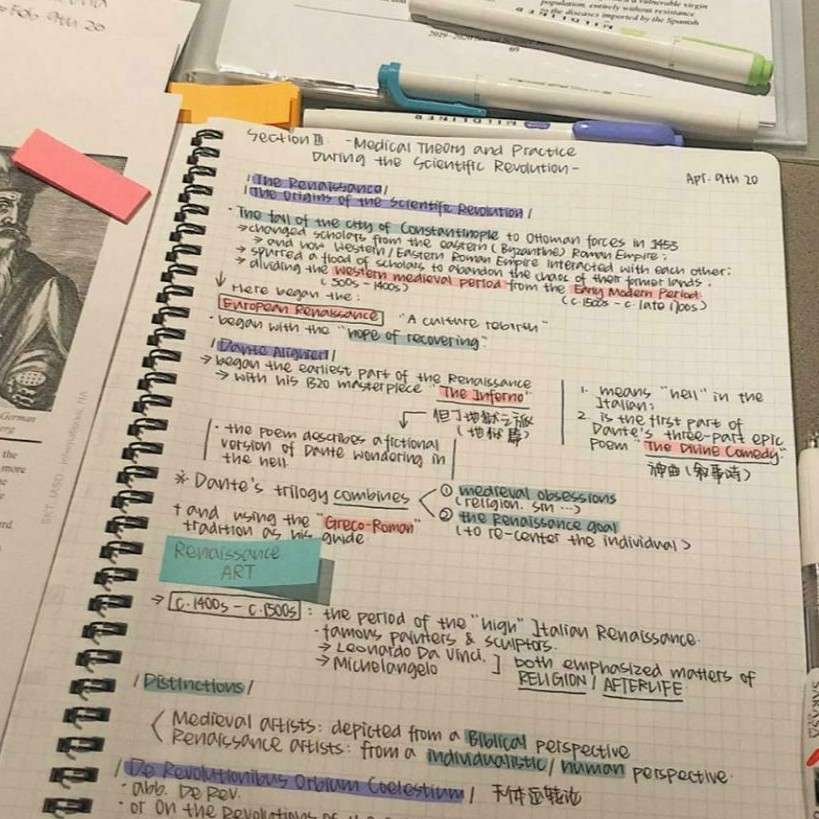 a vulnerable virgin
population, entirely without resistance
to the diseases imported by the Spanish
2019-2020
69
9th 20
MILDLINER
Section III - Medical Theory and Practice
During the Scientific Revolution -
Apr. 9th 20
/The Renaissance/
/The Origins of the Scientific Revolution/
· The fall of the city of Constantinople to Ottoman forces in 1453
→ changed scholars from the eastern (Byzantine) Roman Empire;
→ and how Western/Eastern Roman Empire interacted with each other;
→ spurred a flood of scholars to abandon the chaos of their former lands.
→ dividing the western medieval period from the Early Modern Period.
(500s - 1400s)
(c.1500s - c. late 1700s)
↓ Here began the:
European Renaissance "A culture rebirth"
· began with the "hope of recovering"
/Dante Aligheri/
→ began the earliest part of the Renaissance
→ with his 1320 masterpiece "The Inferno"
但丁地獄之旅
(地獄篇)
1. means "hell" in the
Italian;
2. is the first part of
Dante's three-part epic
poem "The Divine Comedy"
神曲(敘事詩)
· the poem describes a fictional
version of Dante wondering in
the hell.
* Dante's trilogy combines
① medieval obsessions
(religion. sin ...)
② the Renaissance goal
(to re-center the individual)
+ and using the "Greco-Roman"
tradition as his guide
Renaissance
ART
→ c.1400s - c.1500s : the period of the "high" Italian Renaissance.
· famous painters & sculptors.
→ Leonardo Da Vinci.
→ Michelangelo
] both emphasized matters of
RELIGION / AFTERLIFE
/Distinctions/
Medieval artists: depicted from a Biblical perspective
Renaissance artists: from a individualistic/human perspective.
/De Revolutionibus Orbium Coelestium/ 天体运转论
· abb. De Rev.
· or On the Revolutions of the
German
the
more
SARASA